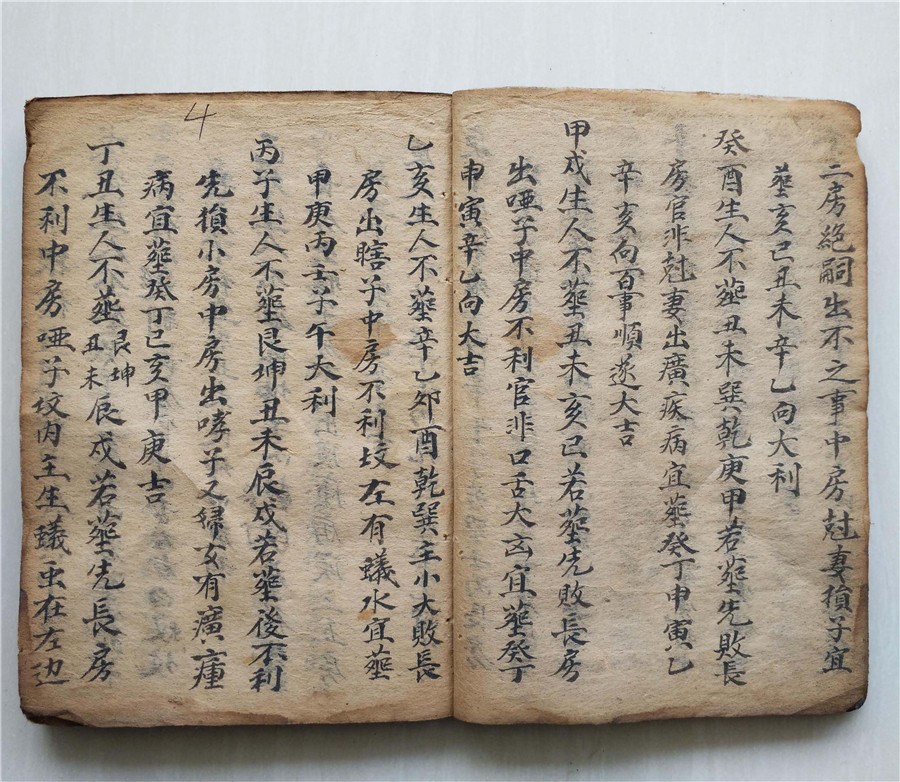 二房絶嗣出不之事中房尅妻損子宜
塟亥巳丑未辛乙向大利
癸酉生人不塟丑未巽乾庚甲若塟先敗長
房官非尅妻出癀疾病宜塟癸丁申寅乙
辛亥向百事順遂大吉
甲戌生人不塟丑未亥巳若塟先敗長房
出啞子中房不利官非口舌大凶宜塟癸丁
申寅辛乙向大吉
乙亥生人不塟辛乙卯酉乾巽主小大敗長
房出瞎子中房不利坟左有蟻水宜塟
甲庚丙壬子午大利
丙子生人不塟艮坤丑未辰戌若塟後不利
先損小房中房出哮子又婦女有癀瘇
病宜塟癸丁巳亥甲庚吉
丁丑生人不塟艮坤丑未辰戌若塟先長房
不利中房啞子坟内主生蟻虫在左边
4